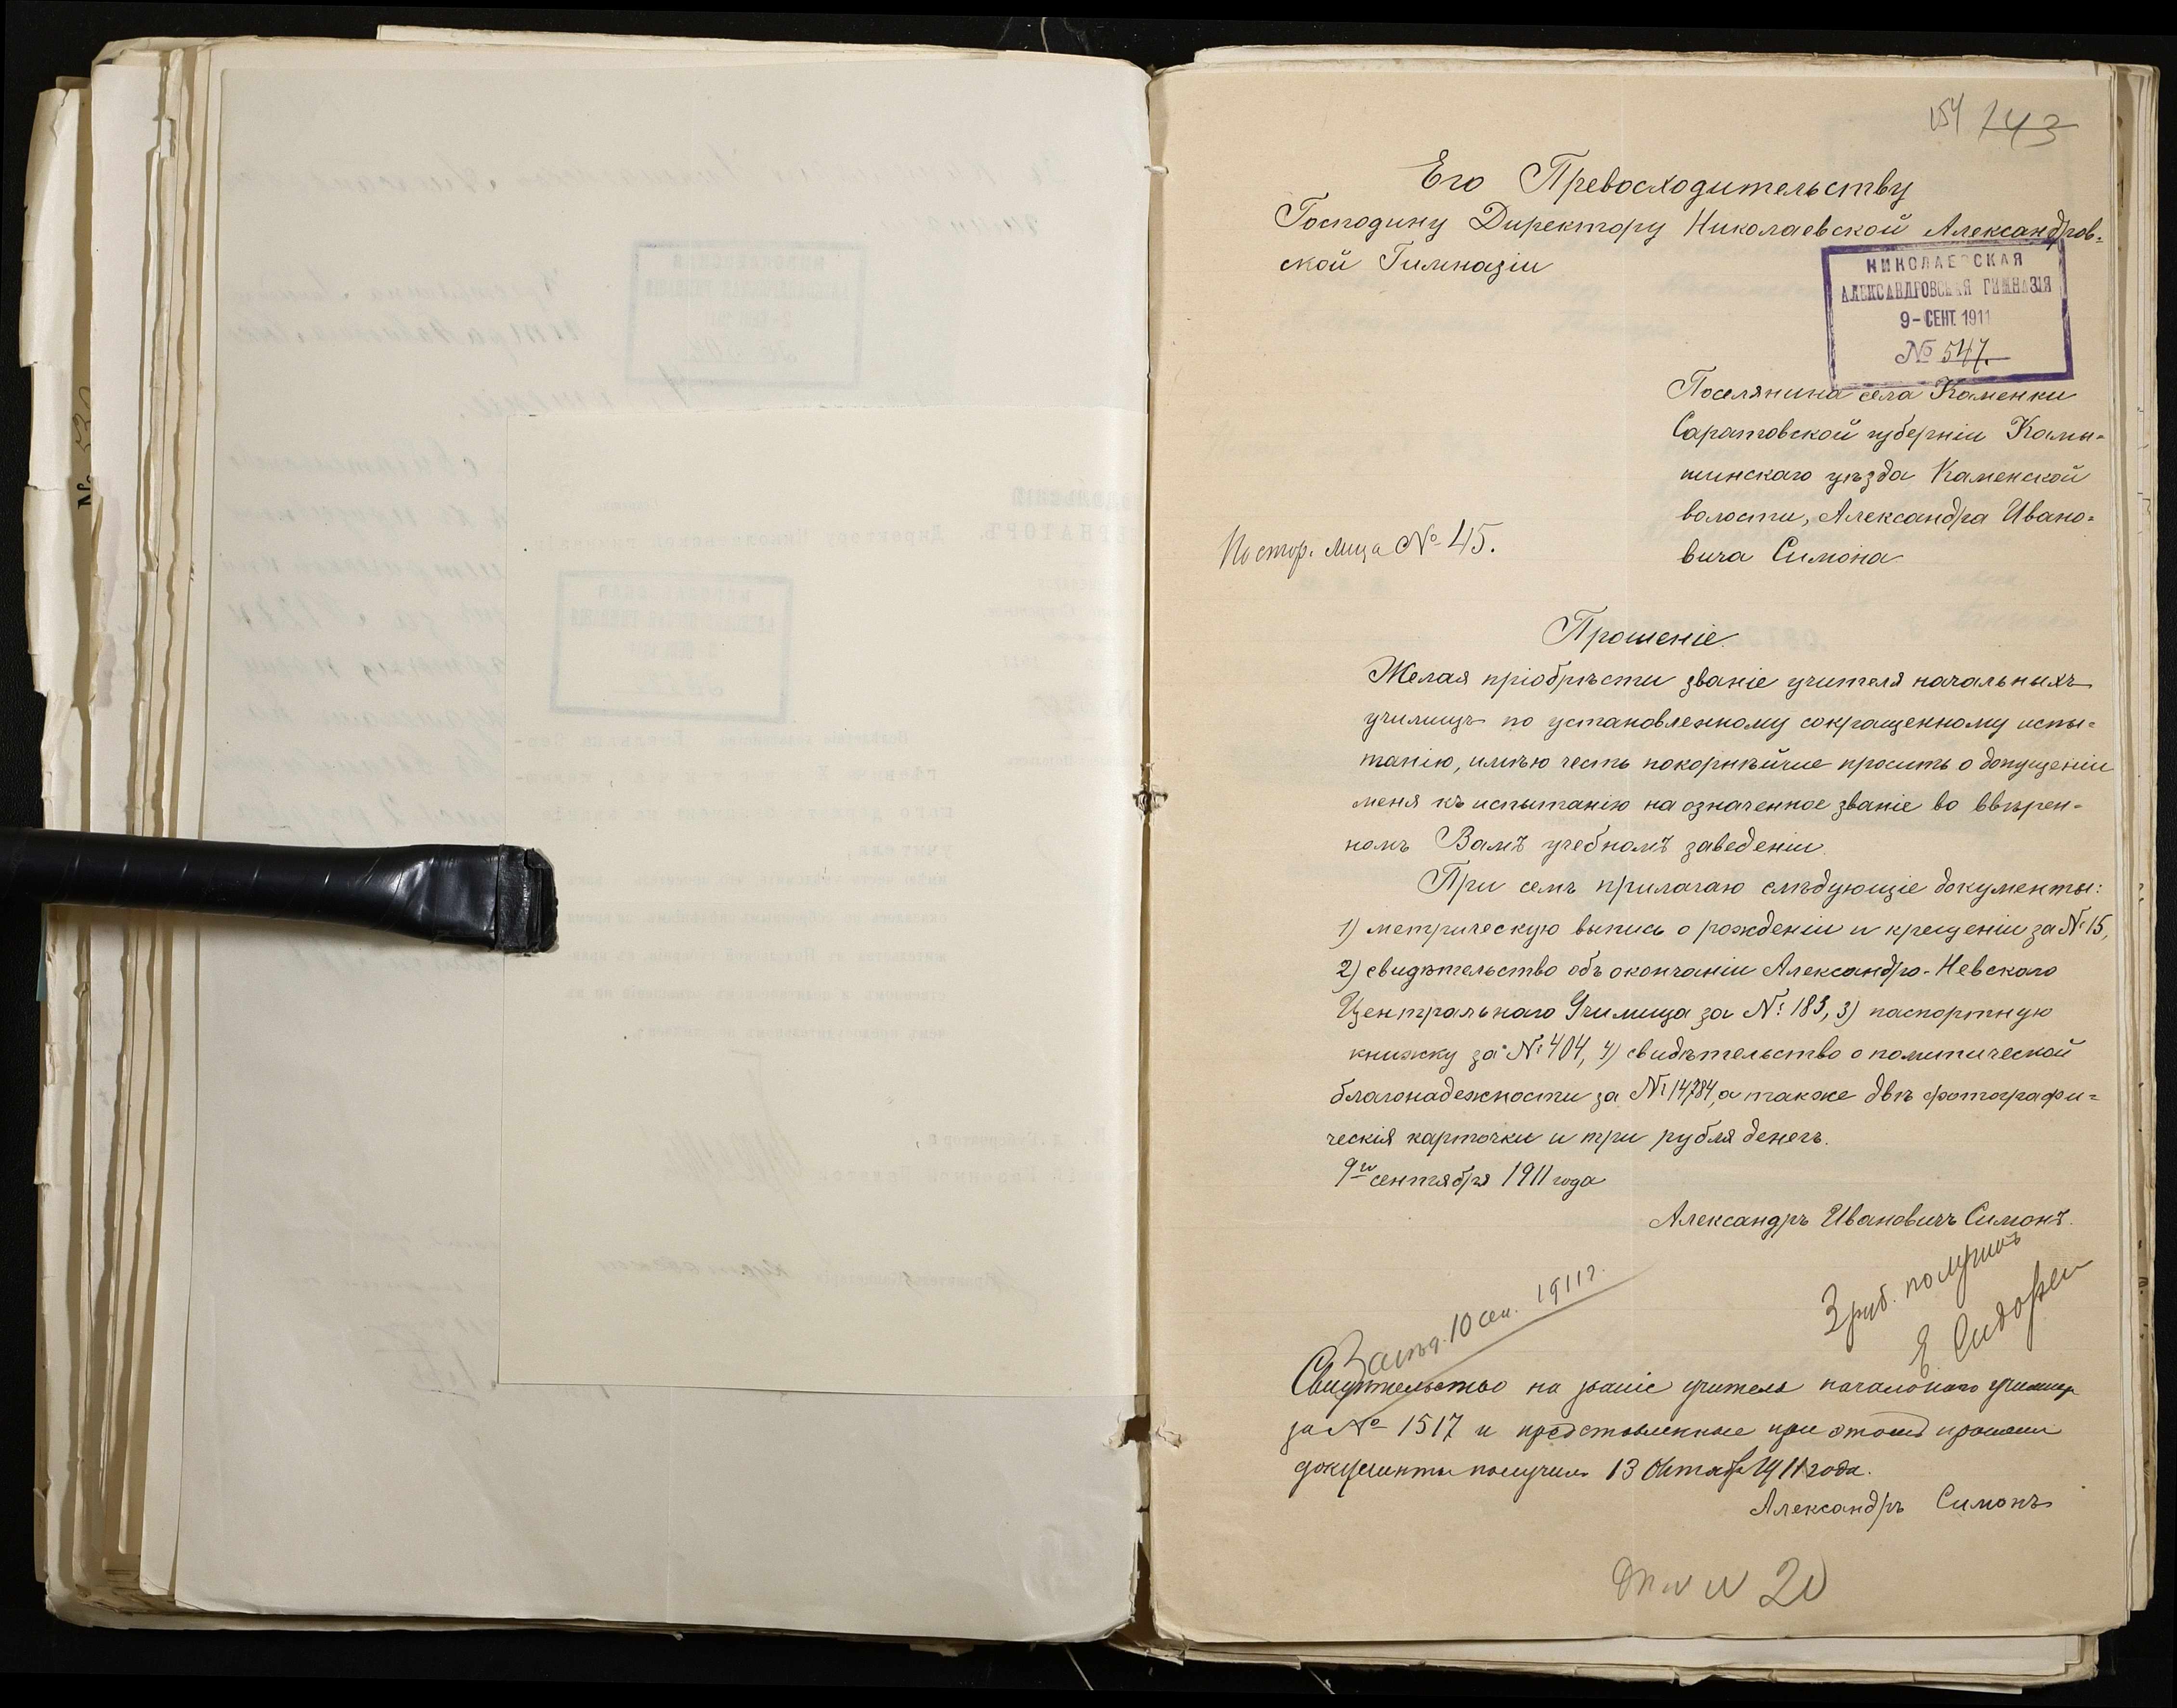 154 143
Его Превосходительству
Господину Директору Николаевской Александров=
ской Гимназіи
НИКОЛАЕВСКАЯ
АЛЕКСАНДРОВСКАЯ ГИМНАЗІЯ
9-СЕНТ. 1911
№ 547.
Поселянина села Каменки
Саратовской губерніи Камы=
шинскаго уѣзда Каменской
волости, Александра Ивано=
вича Симона
Постор. лица № 45.
Прошеніе.
Желая пріобрѣсти званіе учителя начальныхъ
училищъ по установленному сокращенному испы=
танію, имѣю честь покорнѣйше просить о допущеніи
меня къ испытанію на означенное званіе во ввѣрен=
номъ Вамъ учебномъ заведеніи.
При семъ прилагаю слѣдующіе документы:
1) метрическую выпись о рожденіи и крещеніи за № 15,
2) свидѣтельство объ окончаніи Александро-Невскаго
Центральнаго Училища за № 183, 3) паспортную
книжку за № 404, 4) свидѣтельство о политической
благонадежности за № 14784, а также двѣ фотографи=
ческія карточки и три рубля денегъ.
9го сентября 1911 года
Александръ Ивановичъ Симонъ.
3 руб. получилъ
Е.
10 сен. 1911 г.
Свидѣтельство на званіе учителя начальнаго училища
за № 1517 и представленные при этомъ прошеніи
документы получилъ 13 Октября 1911 года.
Александръ Симонъ
20